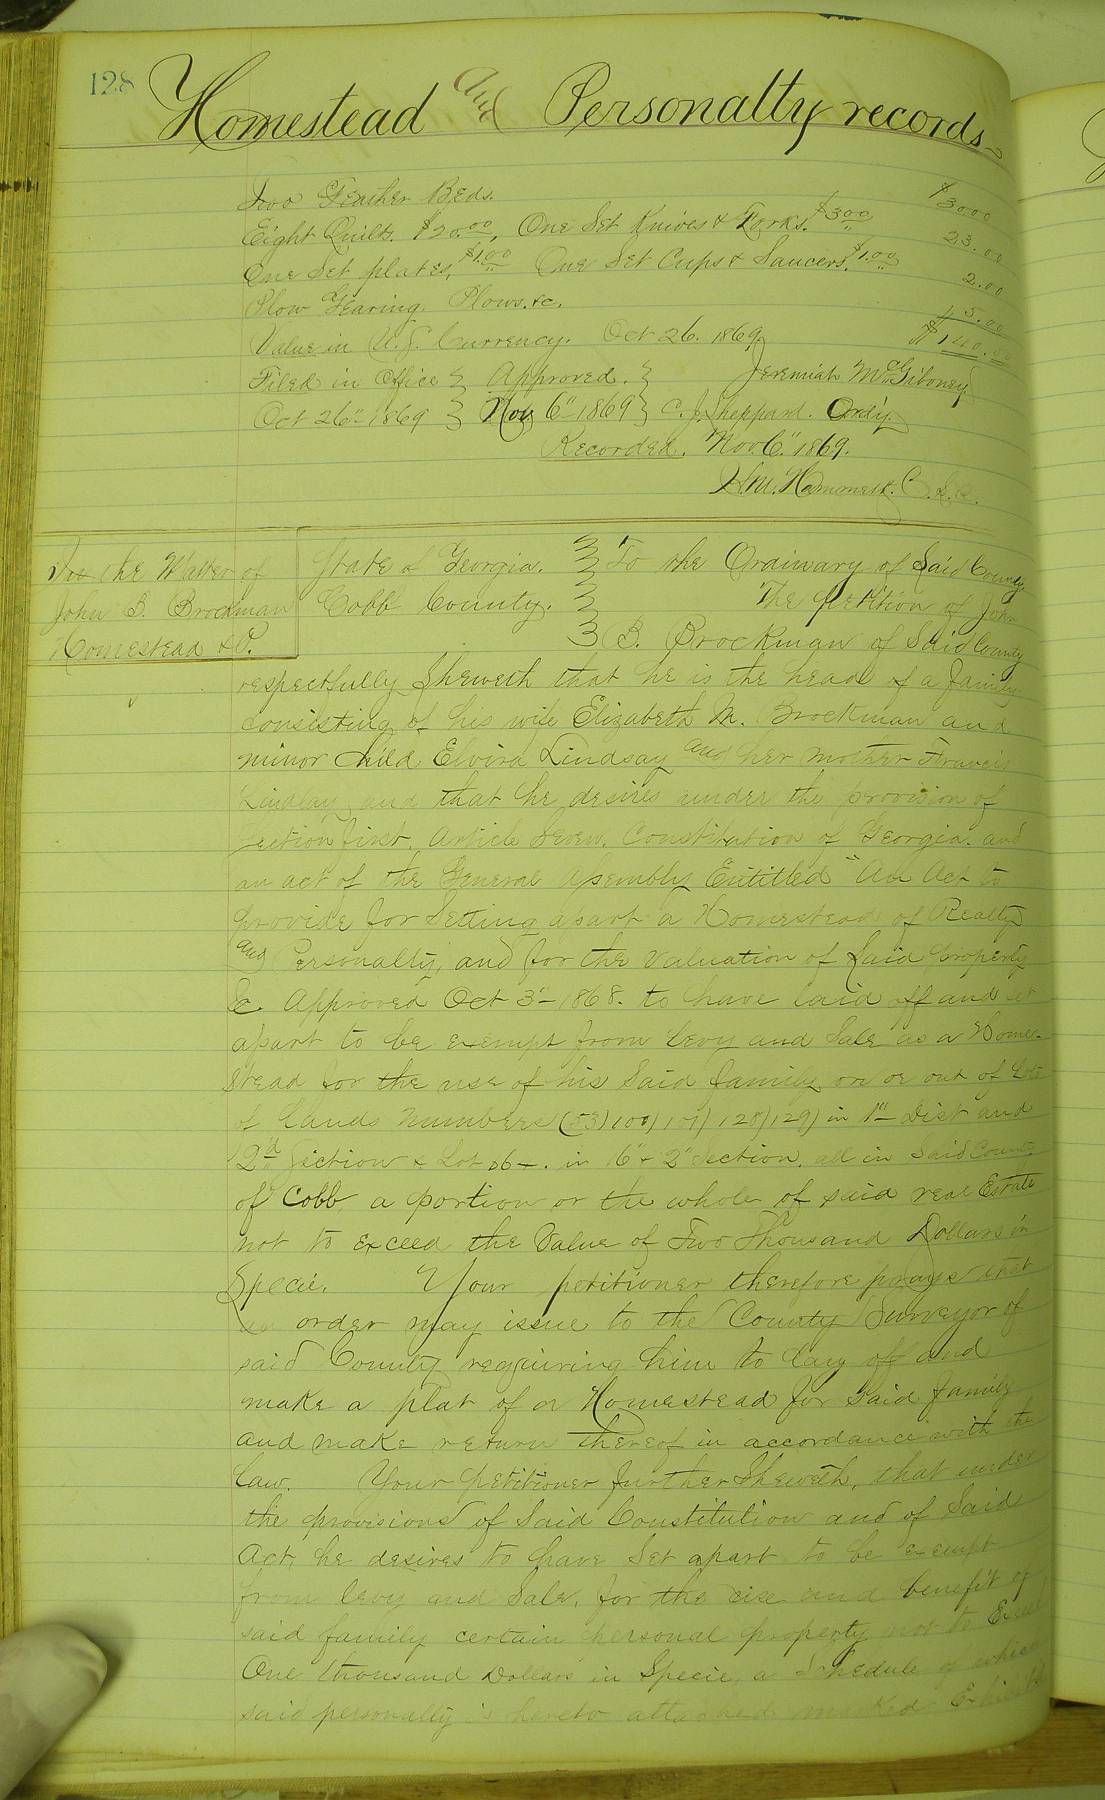 128
Homestead and Personalty records
Two Feather Beds. $30.00
Eight Quilts. $20.00, One Set Knives & Forks. $3.00 23.00
One Set plates, $1.00 One Set Cups & Saucers. $1.00 2.00
Plow Gearing. Plows. &c. 5.00
Value in U.S. Currency. Oct 26. 1869. $140.00
Filed in Office } Approved. } Jeremiah McGiboney
Oct 26" 1869 } Nov 6" 1869 } C. J. Sheppard. Ordy.
Recorded. Nov 6." 1869.
H.M. Hammett. C.S.C.
In the Matter of
John B. Brockman
Homestead & P.
State of Georgia. } To the Ordinary of Said County.
Cobb County. } The petition of John
} B. Brockman of Said County
respectfully Sheweth that he is the head of a family
consisting of his wife Elizabeth M. Brockman and
minor child Elvira Lindsay and her mother Francis
Lindsay and that he desires under the provision of
Section first. Article Seven. Constitution of Georgia. and
an act of the General Assembly Entitled "An Act to
provide for Setting apart a Homestead of Realty
and Personalty, and for the valuation of Said property
&c. Approved Oct 3" 1868. to have laid off and set
apart to be exempt from levy and Sale as a Home-
stead for the use of his Said family on or out of Lots
of Lands Numbers (53) 100) 101) 128) 129) in 1" Dist and
2d Section & Lot in 16" & 2" Section. all in Said County
of Cobb, a portion or the whole of said real Estate
not to exceed the Value of Two Thousand Dollars in
Specie. Your petitioner therefore prays that
an order may issue to the County Surveyor of
said County requiring him to lay off and
make a plat of a Homestead for Said family
and make return thereof in accordance with the
law. Your petitioner further Sheweth, that under
the provisions of Said Constitution and of Said
Act, he desires to have Set apart to be exempt
from levy and Sale, for the use and benefit of
said family certain personal property not to Exceed
One thousand Dollars in Specie, a Schedule of which
said personalty is hereto attached marked Exhibit